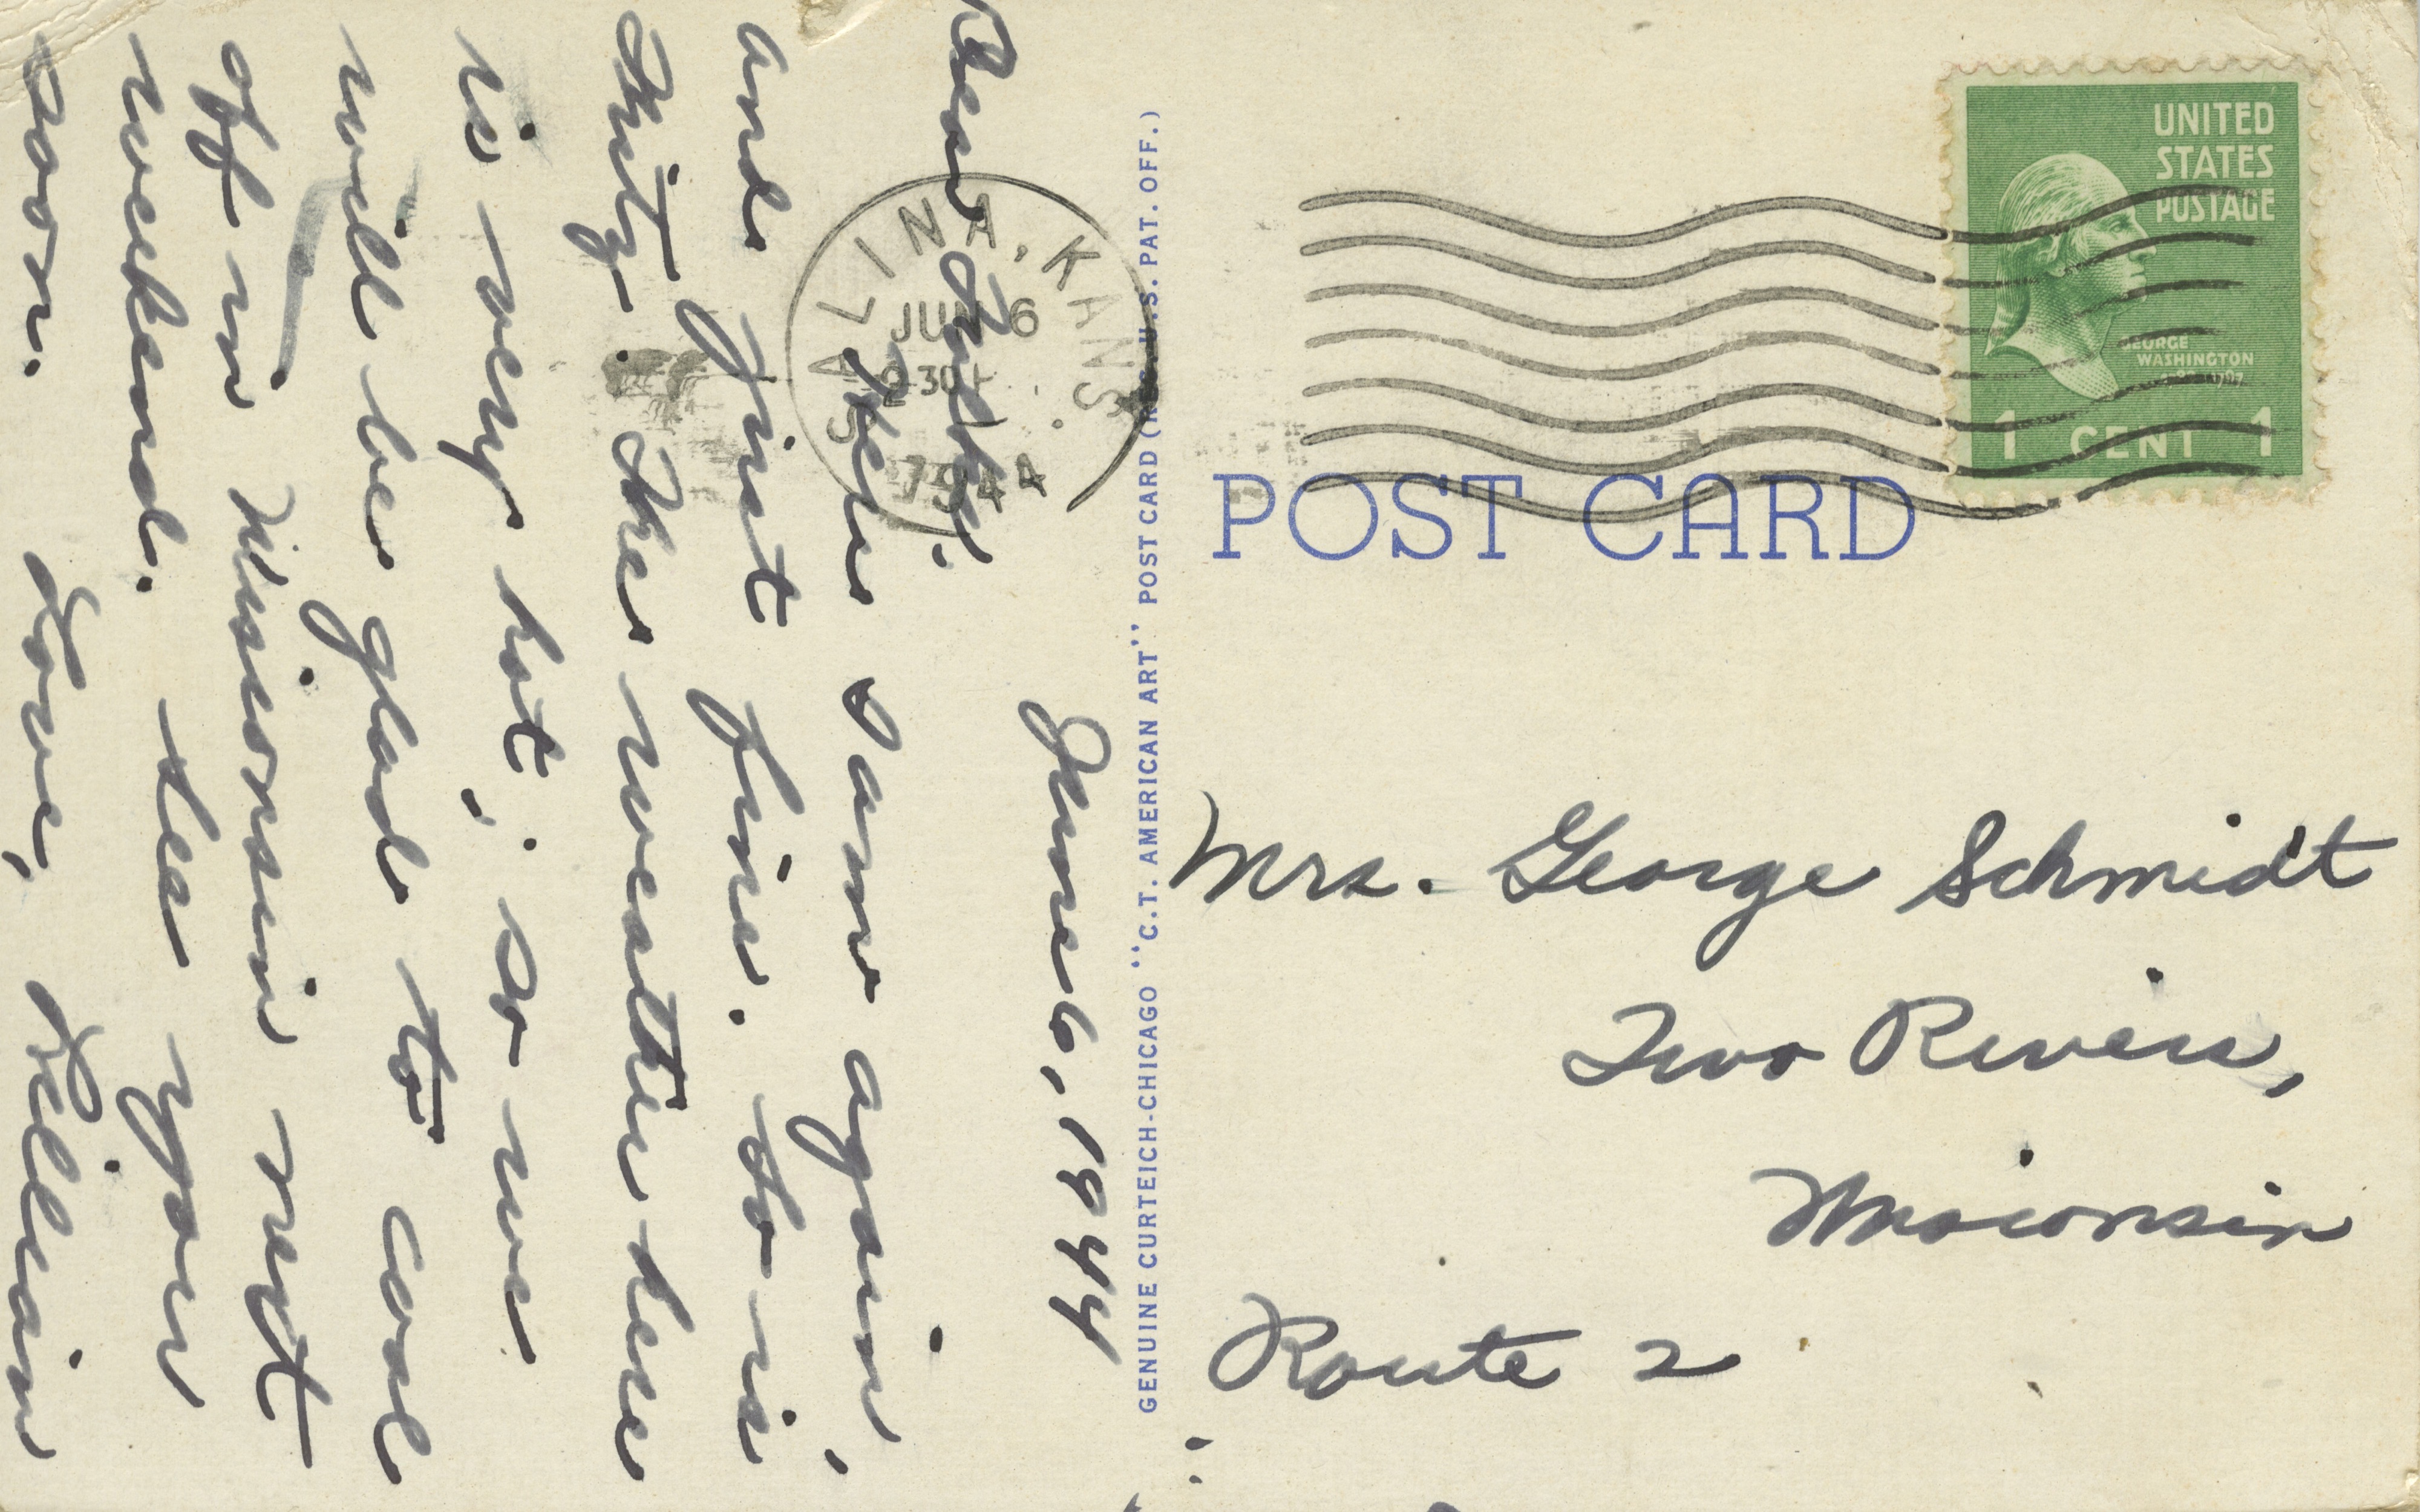 June 6, 1944
Dear Folks:
Here I am again,
and just fine. So is
Fritz. The weather here
is very hot, so we
will be glad to cool
off in Wisconsin next
weekend. See you
soon. Love,
UNITED
STATES
POSTAGE
GEORGE
WASHINGTON
1 CENT 1
SALINA, KANS.
JUN 6
1944
POST CARD
GENUINE CURTEICH-CHICAGO "C.T. AMERICAN ART" POST CARD (REG. U.S. PAT. OFF.)
Mrs. George Schmidt
Two Rivers,
Wisconsin
Route 2